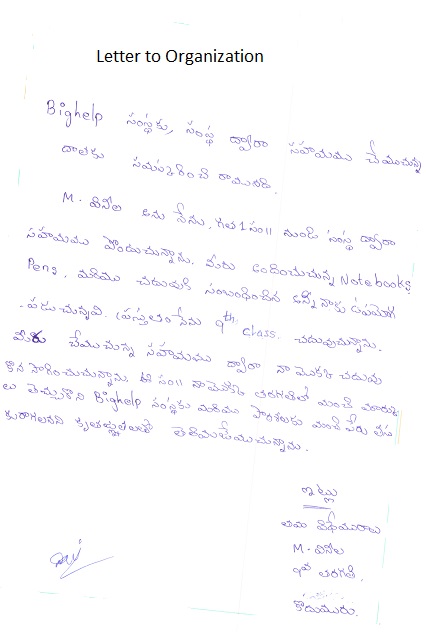 Letter to Organization
Bighelp సంస్థకు, సంస్థ ద్వారా సహాయము చేయుచున్న
దాతకు నమస్కరించి రాయునది.
M. వినీల అను నేను, గత 1 సం॥ నుండి సంస్థ ద్వారా
సహాయము పొందుచున్నాను. మీరు అందించుచున్న Notebooks,
Pens, మరియు చదువుకి సంబంధించిన అన్నీ నాకు ఉపయోగ
పడుచున్నవి. ప్రస్తుతం నేను 9th class చదువుచున్నాను.
మీరు చేయుచున్న సహాయము ద్వారా నా యొక్క చదువు
కొన సాగించుచున్నాను. ఈ సం॥ నా యొక్క తరగతిలో మంచి మార్కు
లు తెచ్చుకొని Bighelp సంస్థకు మరియు పాఠశాలకు మంచి పేరు తీసు
కురాగలనని కృతజ్ఞతలతో తెలియజేయుచున్నాను.
ఇట్లు
తమ విధేయురాలు
M. వినీల
9వ తరగతి.
కొదుమూరు.